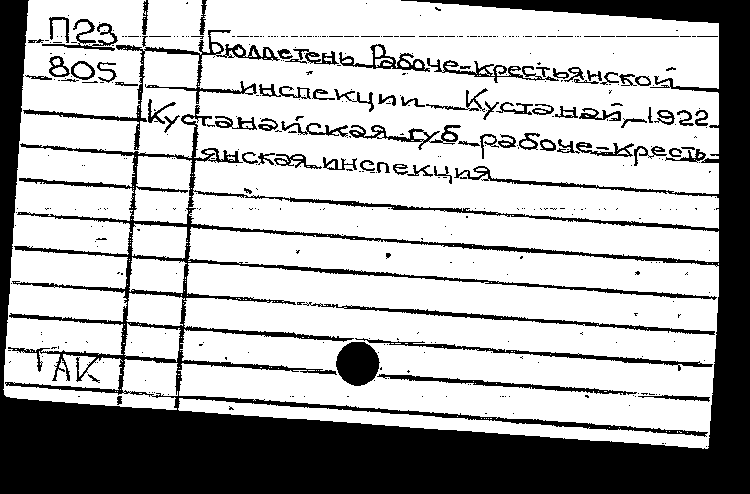 П23
Бюллетень Рабоче-крестьянской
805
инспекции Кустанай, 1922
Кустанайская губ. рабоче-кресть-
янская инспекция
ГАК